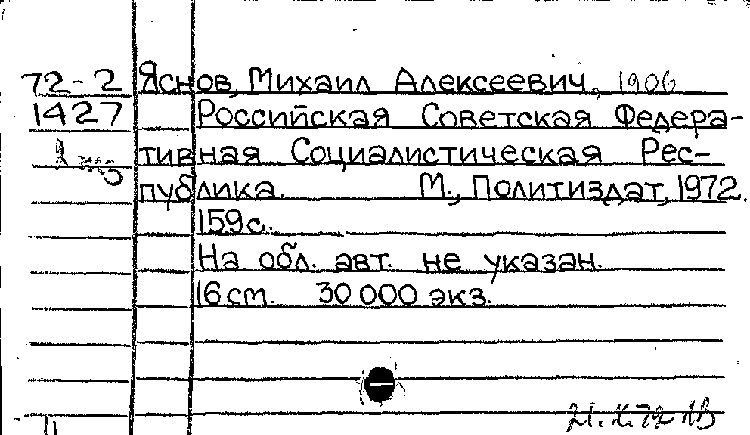 72-2 Яснов, Михаил Алексеевич, 1906
1427 Российская Советская Федера-
тивная Социалистическая Рес-
публика. М., Политиздат, 1972.
159с.
На обл. авт. не указан.
16 см. 30 000 экз.